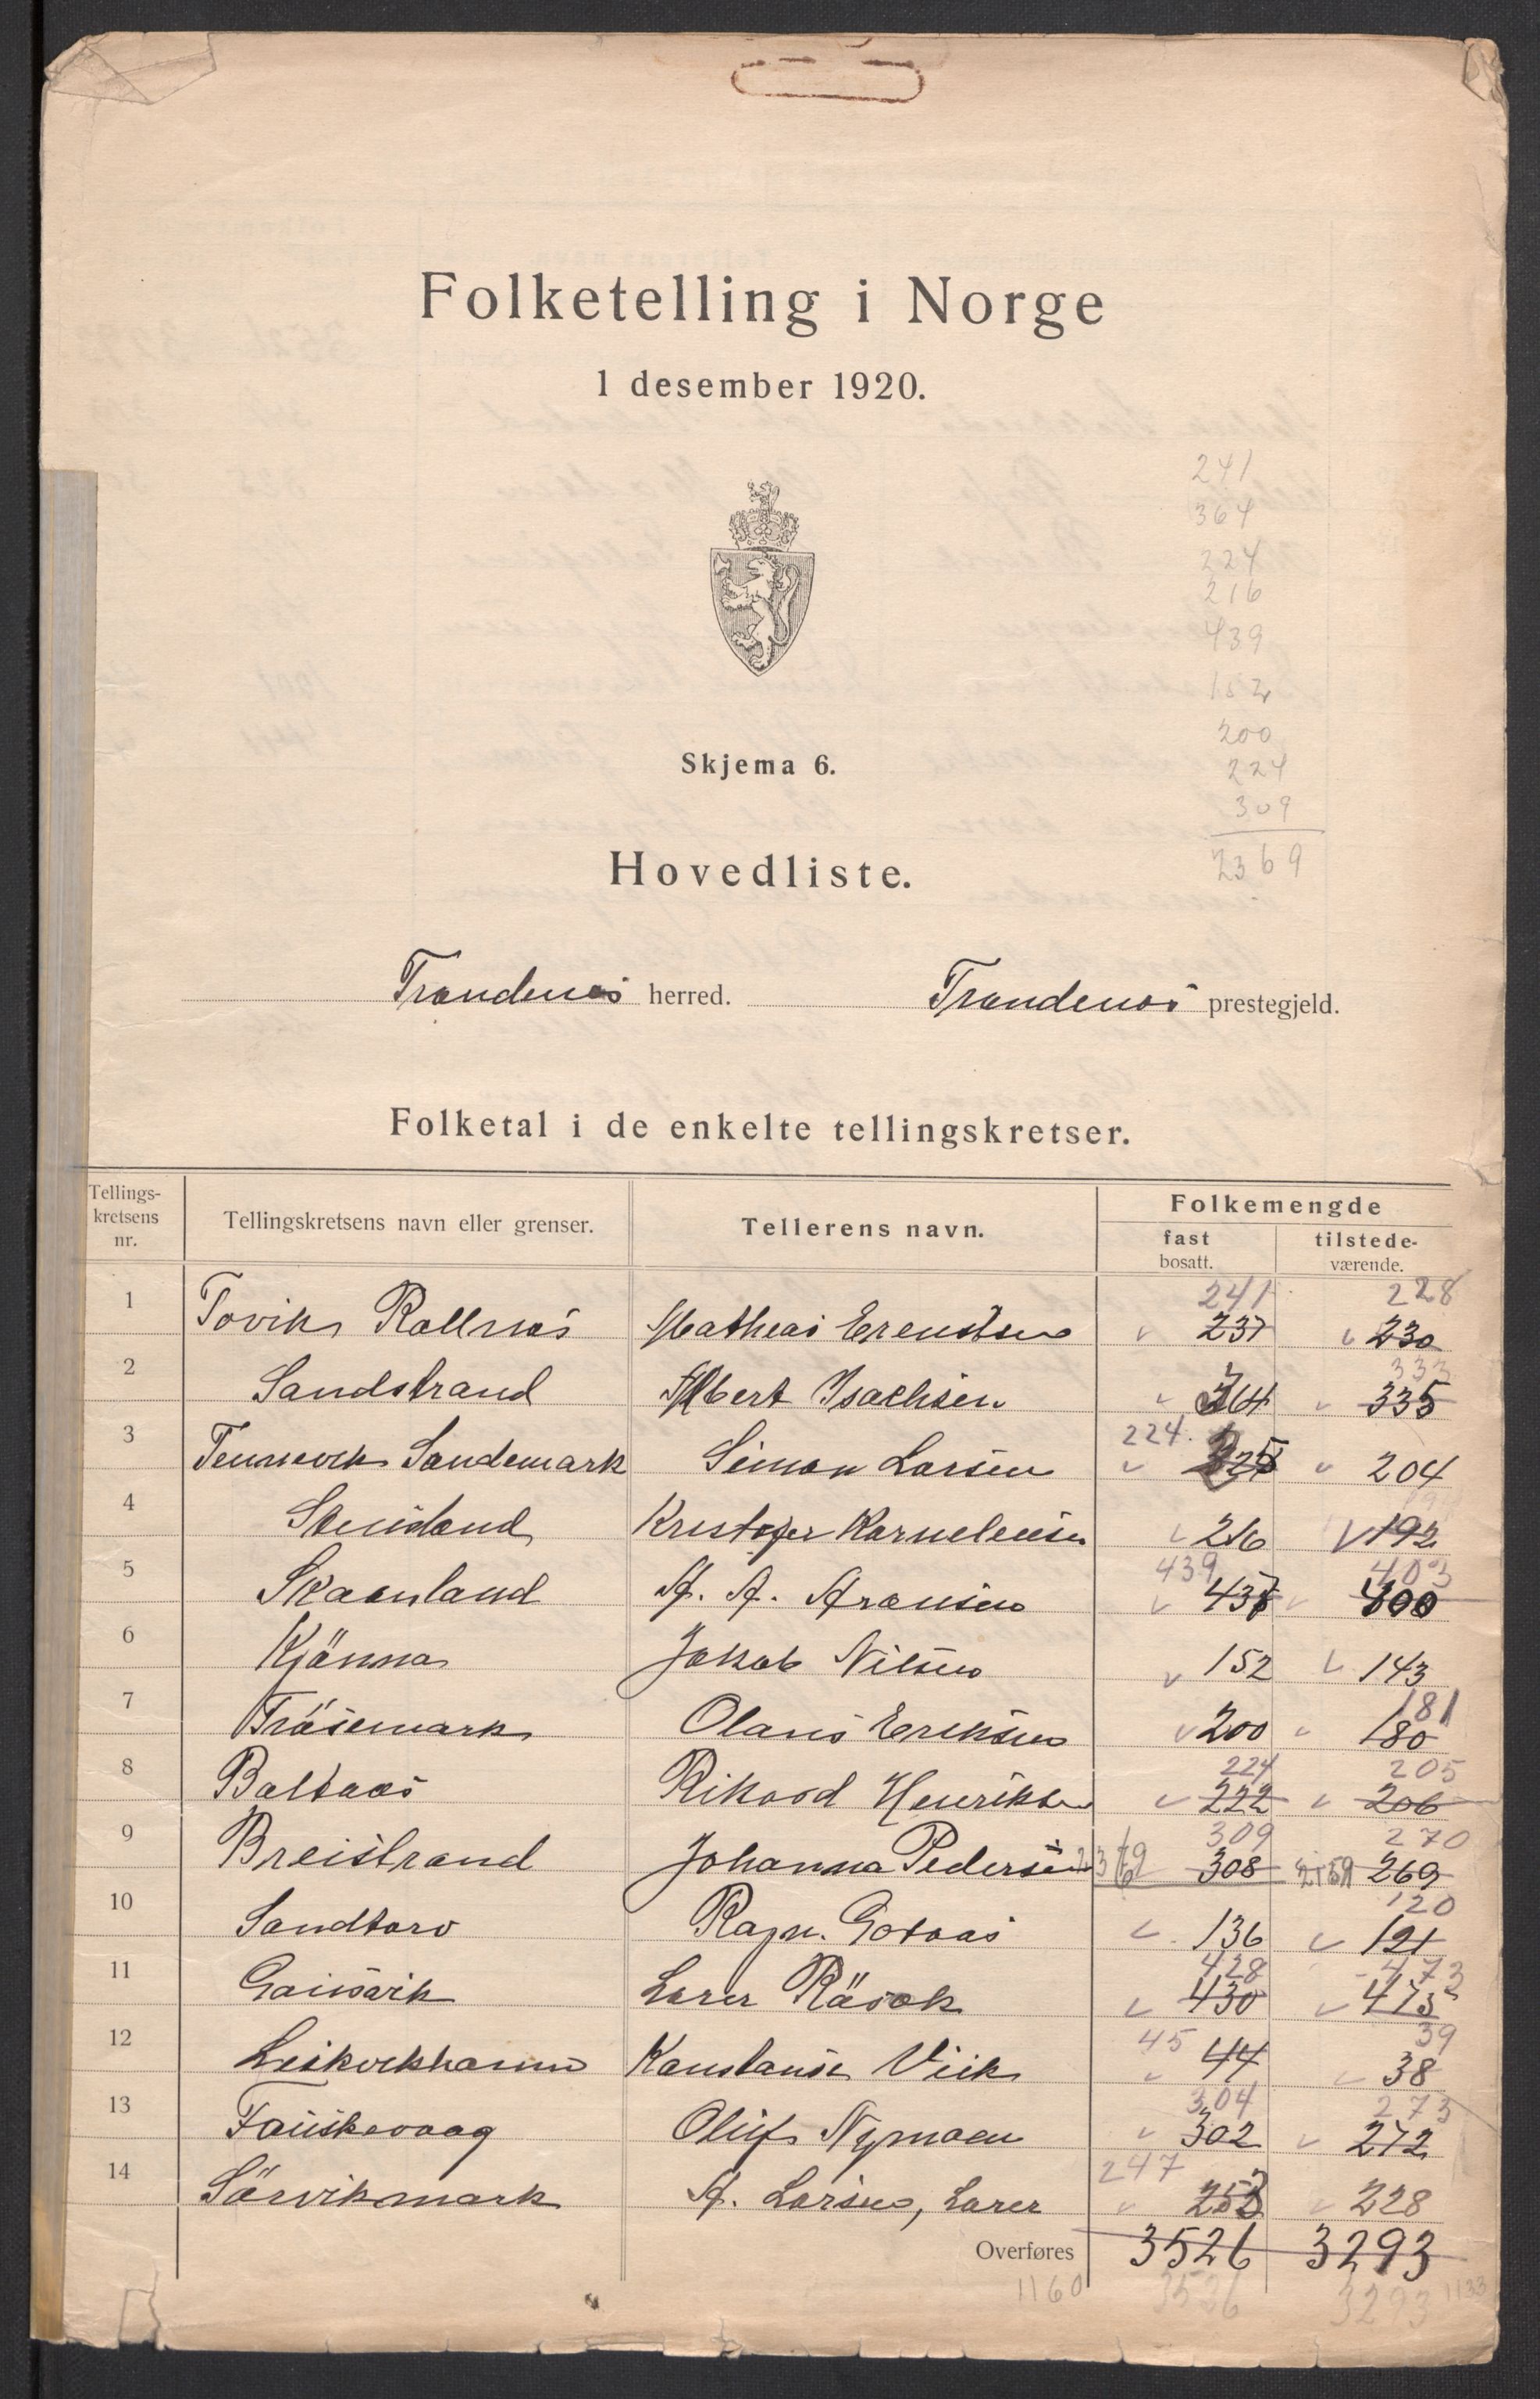 Folketelling i Norge
1 desember 1920.
241
364
224
216
439
152
200
224
309
2369
Skjema 6.
Hovedliste.
Trondenæs herred. Trondenæs prestegjeld.
Folketal i de enkelte tellingskretser.
Tellings-kretsens nr. Tellingskretsens navn eller grenser. Tellerens navn. Folkemengde
fast bosatt. tilstede-værende.
241 228
1 Tovik Rollnæs Matheas Erentsen 237 230
333
2 Sandstrand Albert Isachsen 364 335
224.
3 Tennevik Sandemark Simon Larsen 225 204
4 Stensland Kristofer Korneliussen 216 192
439 403
5 Skaanland A. A. Aronsen 437 400
6 Kjönna Jakob Nilsen 152 143
181
7 Träsemark Olaus Eriksen 200 180
224 205
8 Baltaas Rikard Henriksen 222 206
309 270
9 Breistrand Johanna Pedersen 2369 308 2159 269
120
10 Sandtorv Ragn. Gotaas 136 121
428 473
11 Gausvik Lærer Räsok 430 475
45 39
12 Leikvikhamn Konstanse Viik 44 38
304 273
13 Fauskevaag Oluf Nymoen 302 272
247
14 Sörvikmark A. Larsen, Lærer 253 228
Overføres 3526 3293
1160 3526 3293 1133